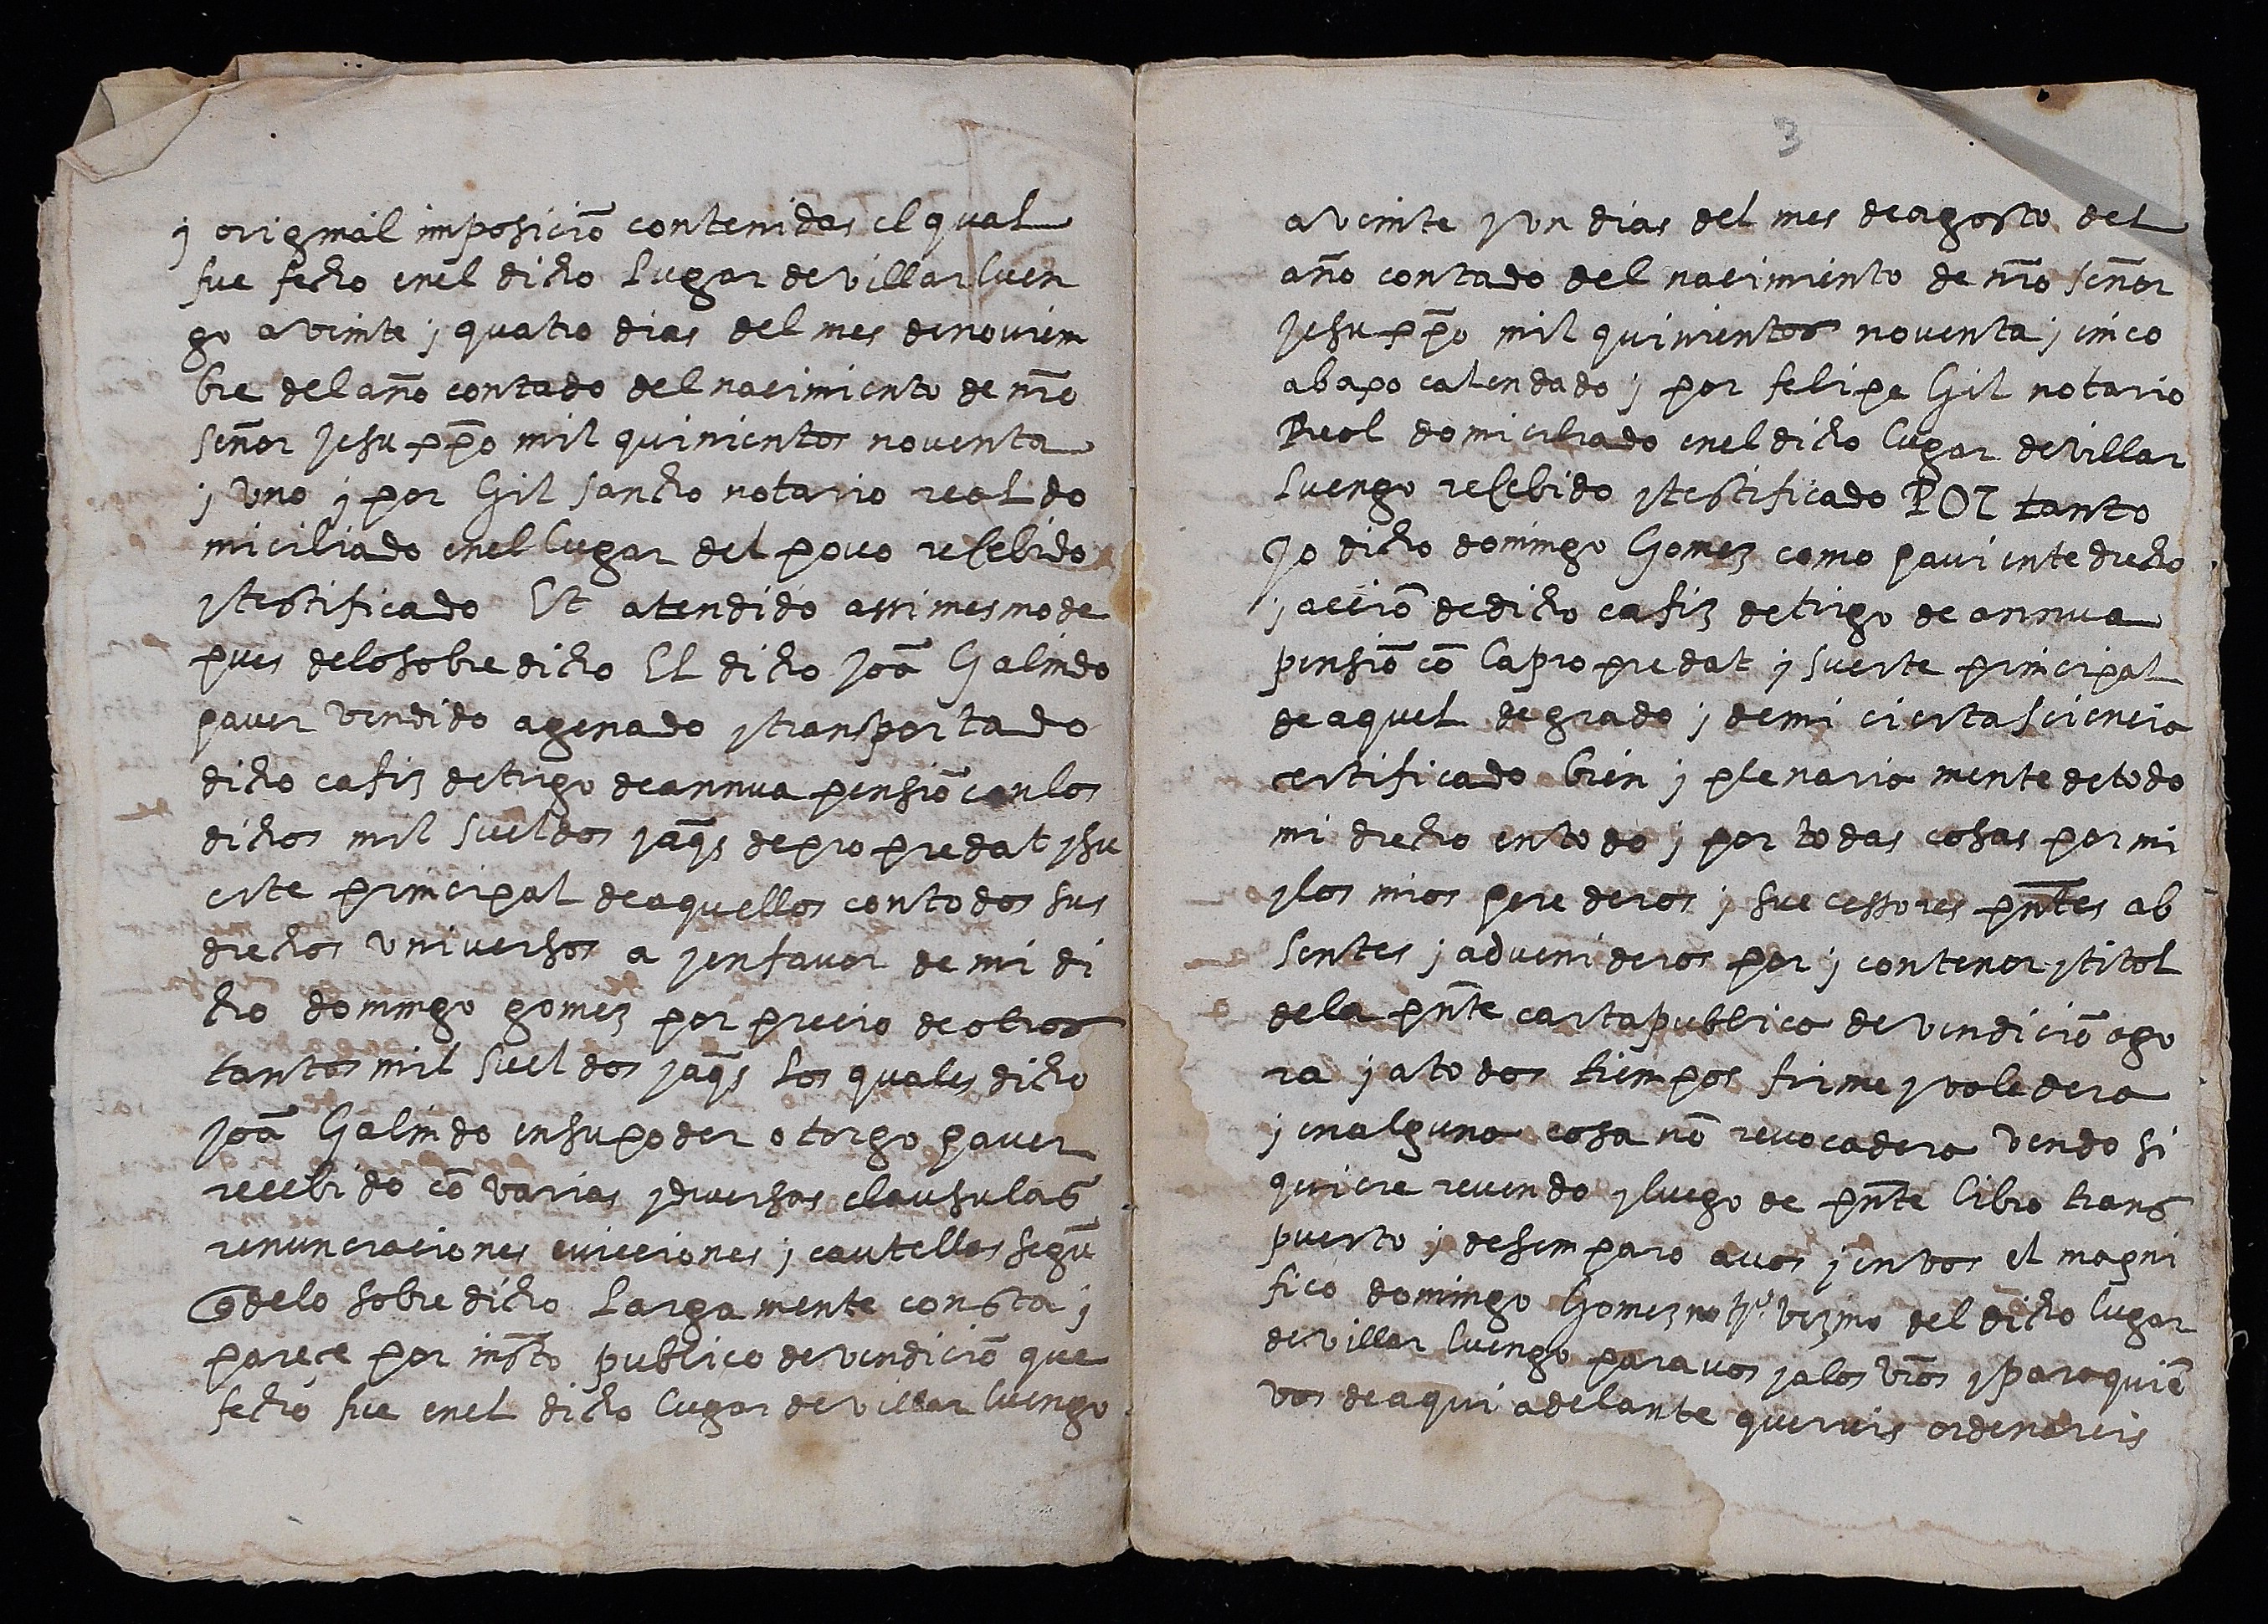 y original imposiciō contenidas el qual
fue fecho enel dicho lugar de villarluen
go a veinte y quatro dias del mes de noviem
bre del año contado del nacimiento de nr̄o
señor jesu xp̄o mil quinientos noventa
y uno y por Gil sancho notario real do
miciliado enel lugar del povo rescebido
y testificado Et atendido assi mesmo de
pues delo sobre dicho El dicho joā Galindo
haver vendido agenado y transportado
dicho cafiz de trigo de annua pensiō con los
dichos mil sueldos jaqs̄ de propredat y su
erte principal de aquellos con todos sus
drechos universos a y en favor de mi di
cho domingo gomez por precio de otros
tantos mil sueldos jaqs̄ los quales dicho
joā Galindo en su poder otorgo haver
recebido cō varias y diversas clausulas
renunciaciones evicciones y cautellas segū
q̄ delo sobre dicho largamente consta y
pareçe por insto̅ publico de vendiciō que
fecho fue enel dicho lugar de villar luengo
3
a veinte y un dias del mes de agosto del
año contado del nacimiento de nr̄o señor
jesu xp̄o mil quinientos noventa y cinco
abaxo calendado y por felipe Gil notario
Real domiciliado enel dicho lugar de villar
luengo rescebido y testificado POR tanto
yo dicho domingo Gomez como havi ente drecho
y acciō de dicho cafiz de trigo de annua
pensiō cō la propredat y suerte principal
de aquel de grado y de mi cierta sciencia
certificado bien y plenaria mente de todo
mi drecho en todo y por todas cosas por mi
y los mios herederos y successores pn̄tes ab
sentes y advenideros por y con tenor y titol
dela pn̄te carta publica de vendiciō ago
ra y a todos tiempos firme y valedera
y en alguna cosa nō revocadera vendo si
quiere revendo y luego de pn̄te libro trans
puerto y desemparo a vos y en vos el magni
fico domingo Gomez notro vezino del dicho lugar
de villar luengo para vos y a los vr̄os y para quiē
vos de aqui adelante querreis ordenareis